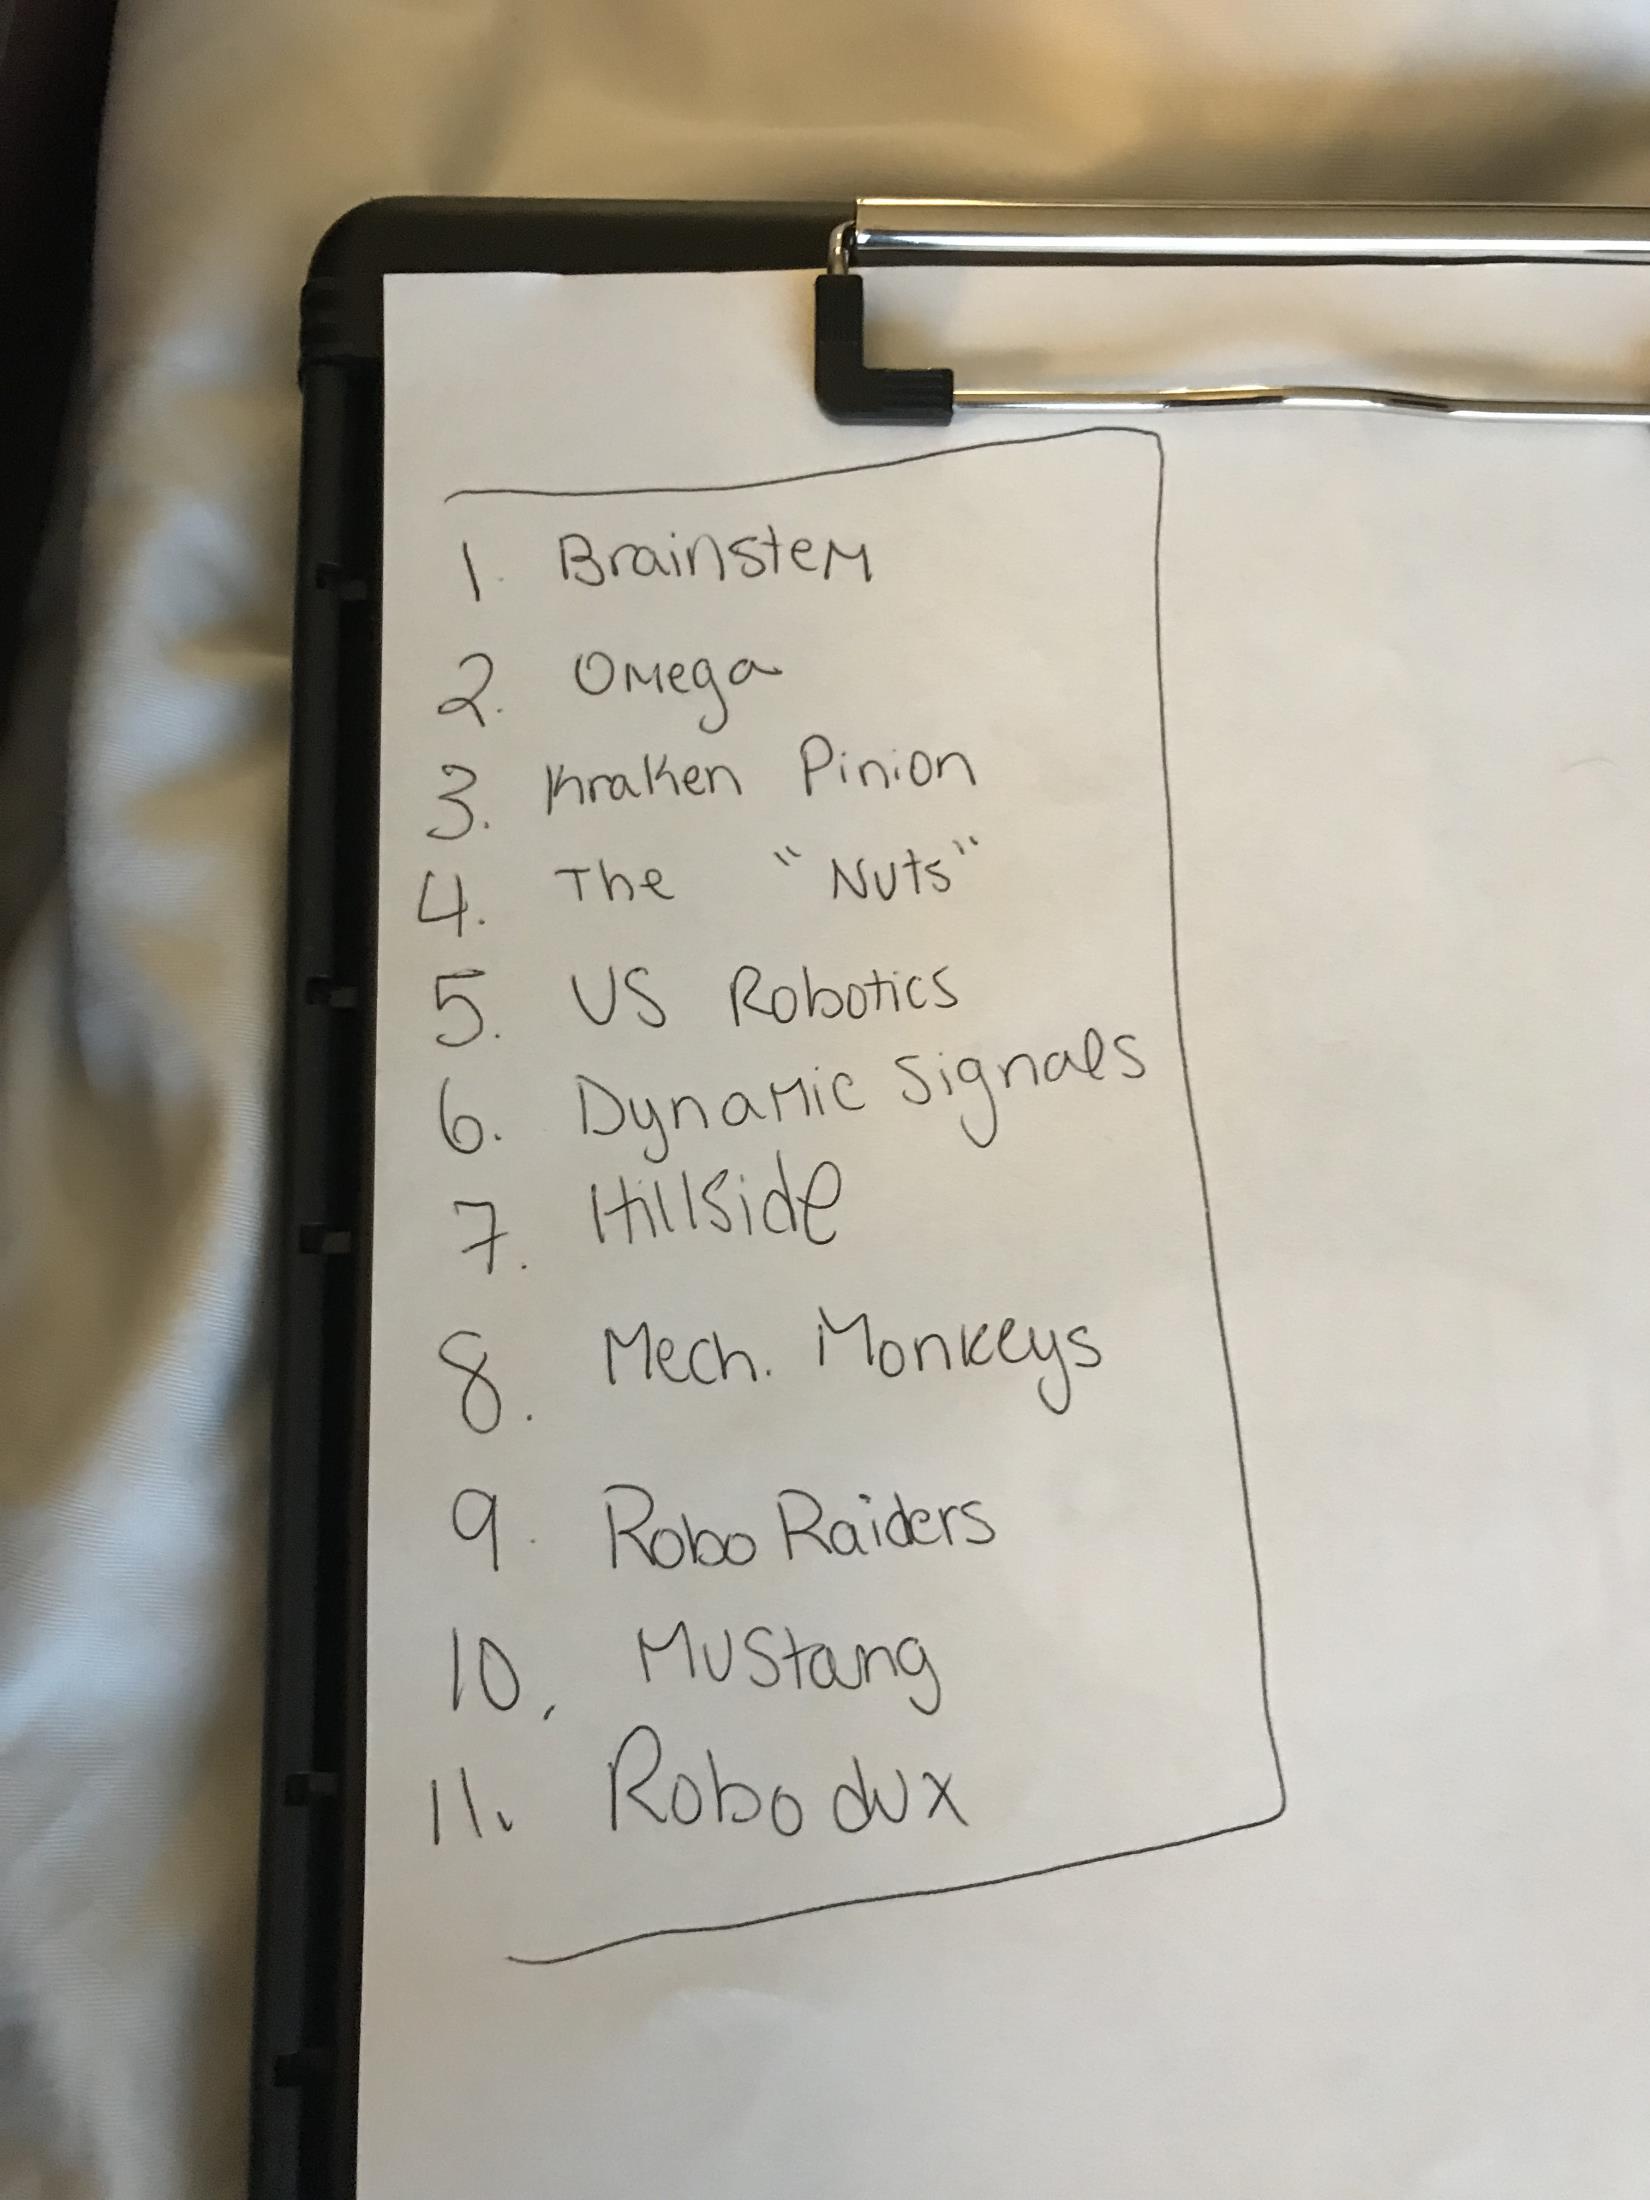 1. Brainstem
2. Omega
3. Kraken Pinion
4. The "Nuts"
5. US Robotics
6. Dynamic Signals
7. Hillside
8. Mech. Monkeys
9. Robo Raiders
10. Mustang
11. Robo dux